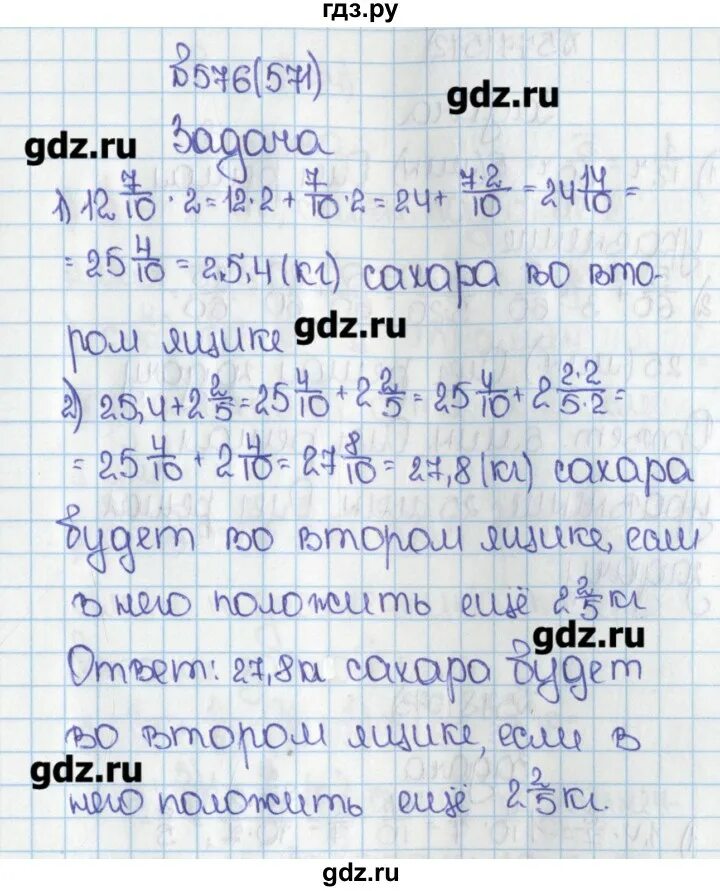 гдз.ру
В576(571)
gdz.ru
gdz.ru
Задача
1) 12 7/10 · 2 = 12 · 2 + 7/10 · 2 = 24 + 7·2/10 = 24 14/10 =
= 25 4/10 = 25,4 (кг) сахара во вто-
ром ящике
gdz.ru
2) 25,4 + 2 2/5 = 25 4/10 + 2 2/5 = 25 4/10 + 2 2·2/5·2 =
= 25 4/10 + 2 4/10 = 27 8/10 = 27,8 (кг) сахара
будет во втором ящике, если
в него положить ещё 2 2/5 кг
gdz.ru
Ответ: 27,8 кг сахара будет
во втором ящике, если в
gdz.ru
него положить ещё 2 2/5 кг.
gdz.ru